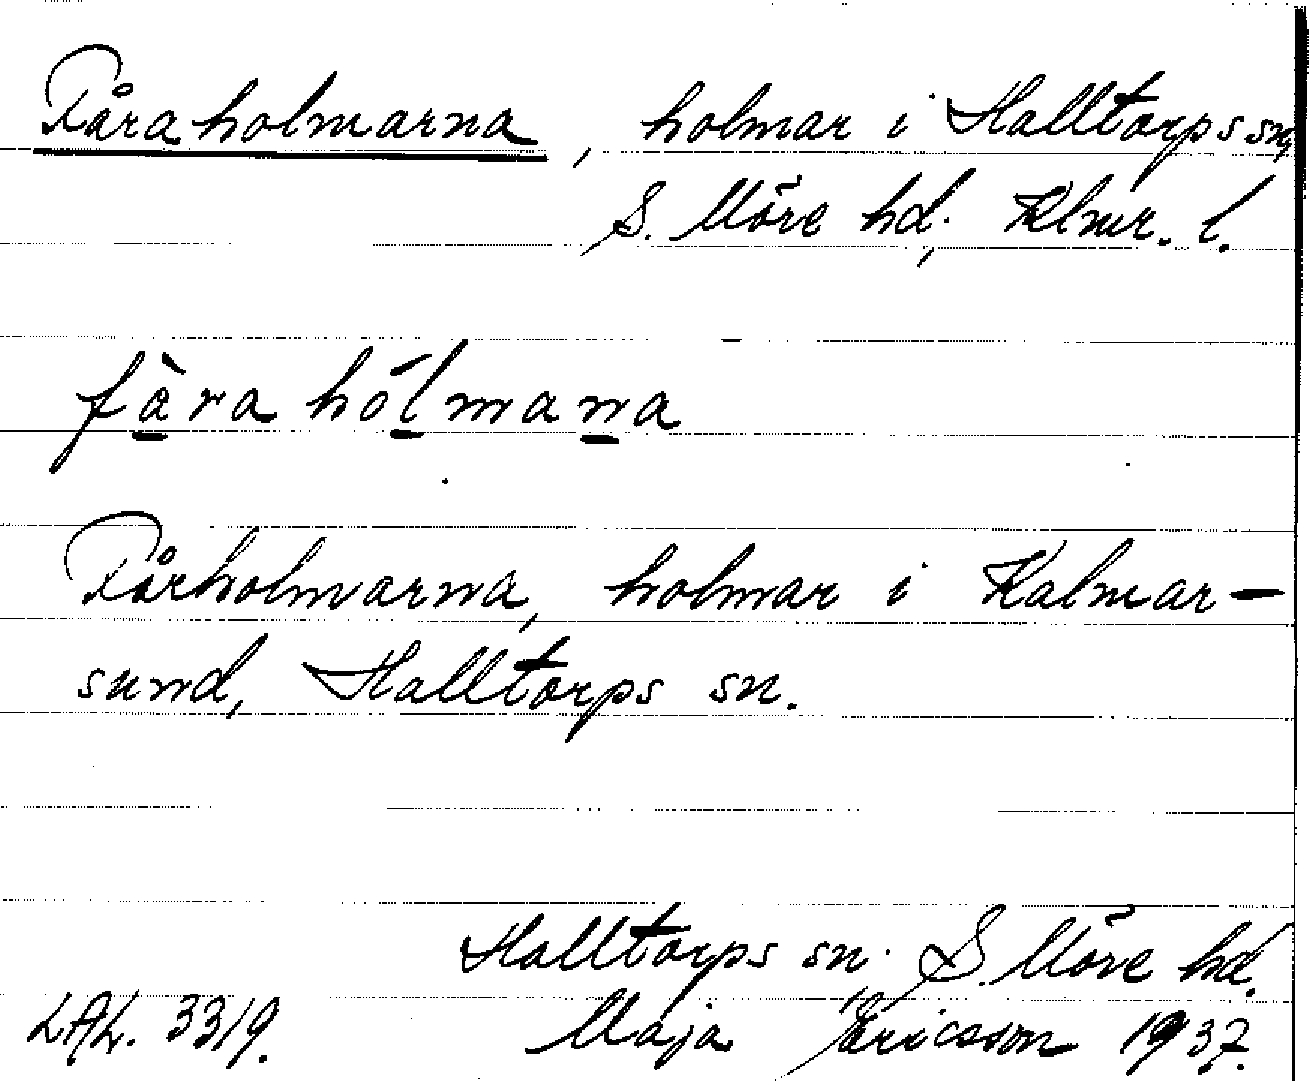 Fåraholmarna, holmar i Halltorps sn,
S. Möre hd, Klmr. l.
fàra hólmana
Fårholmarna, holmar i Kalmar-
sund, Halltorps sn.
Halltorps sn. S. Möre hd.
LAL. 3319. Maja Ericsson 1937.